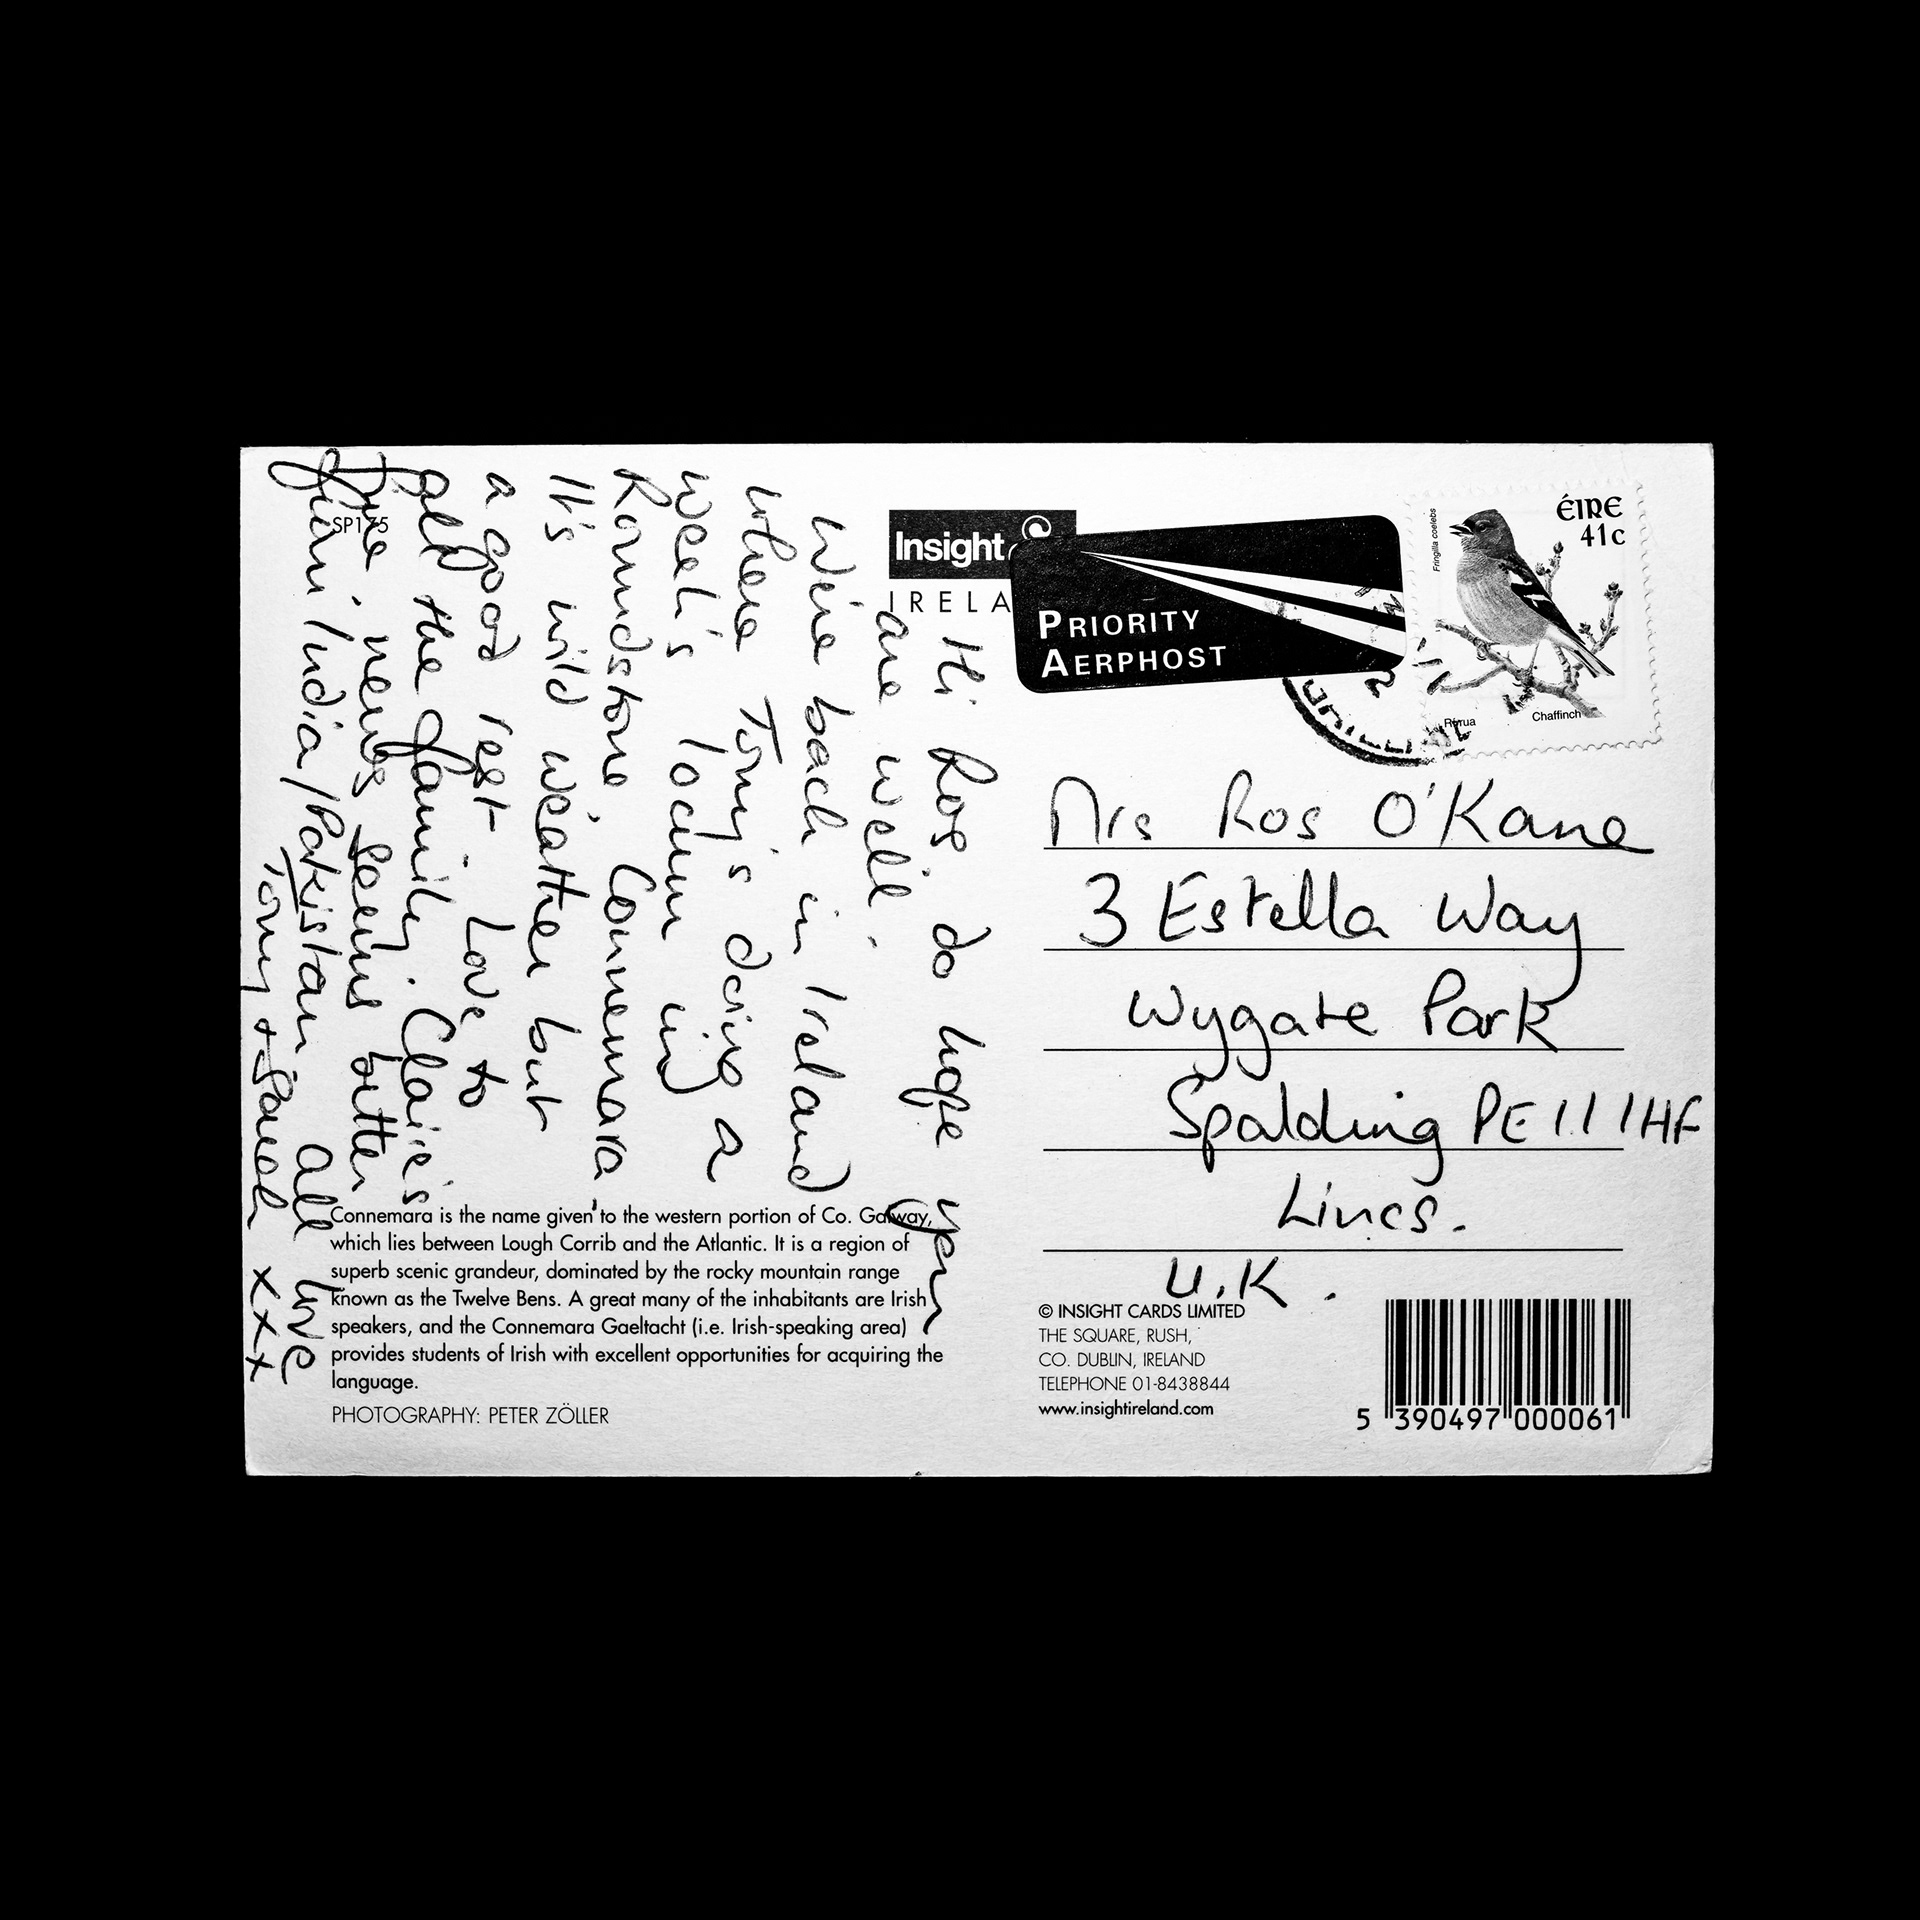 SP175
Insight
IRELA
PRIORITY
AERPHOST
ÉIRE
41c
Fringilla coelebs
Rí rua
Chaffinch
Hi Ros do hope you
are well.
We're back in Ireland
where Tony's doing a
week's locum in
Roundstone Connemara.
It's mild weather but
a good rest Love to
all the family. Claire's
fine news seems better
from India/Pakistan all love
Tony + Sarah xxx
Mrs Ros O'Kane
3 Estella Way
Wygate Park
Spalding PE11 1HF
Lincs.
U.K.
Connemara is the name given to the western portion of Co. Galway,
which lies between Lough Corrib and the Atlantic. It is a region of
superb scenic grandeur, dominated by the rocky mountain range
known as the Twelve Bens. A great many of the inhabitants are Irish
speakers, and the Connemara Gaeltacht (i.e. Irish-speaking area)
provides students of Irish with excellent opportunities for acquiring the
language.
PHOTOGRAPHY: PETER ZÖLLER
© INSIGHT CARDS LIMITED
THE SQUARE, RUSH,
CO. DUBLIN, IRELAND
TELEPHONE 01-8438844
www.insightireland.com
5 390497 000061